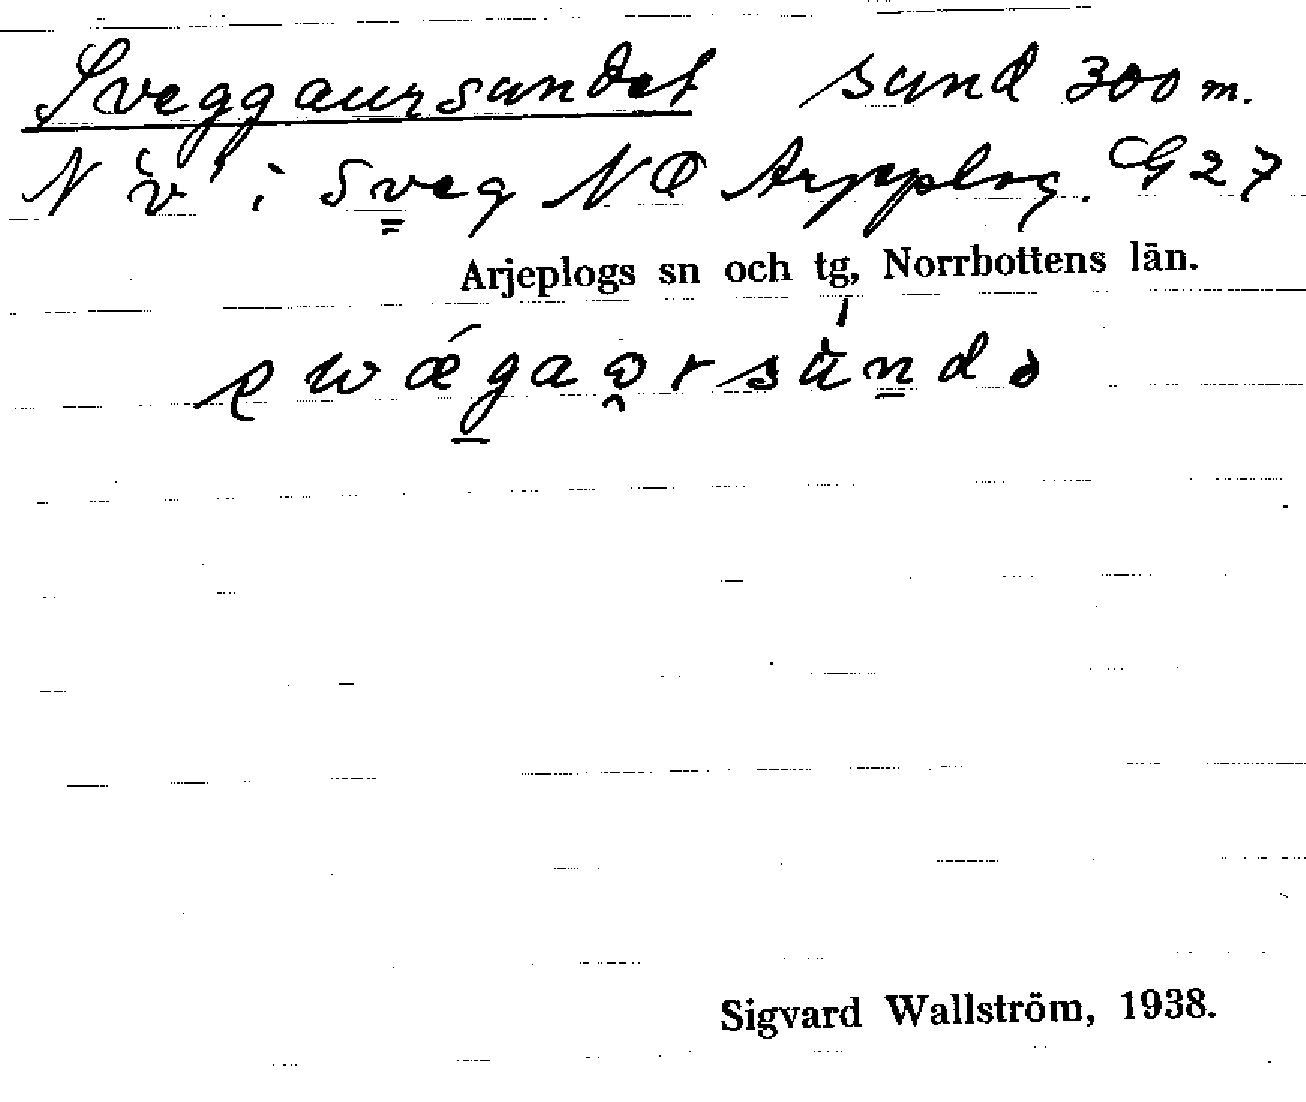 Sveggaursundet sund 300 m.
N 'v' i Sveg NO Arjeplog. G 27
Arjeplogs sn och tg, Norrbottens län.
Sigvard Wallström, 1938.